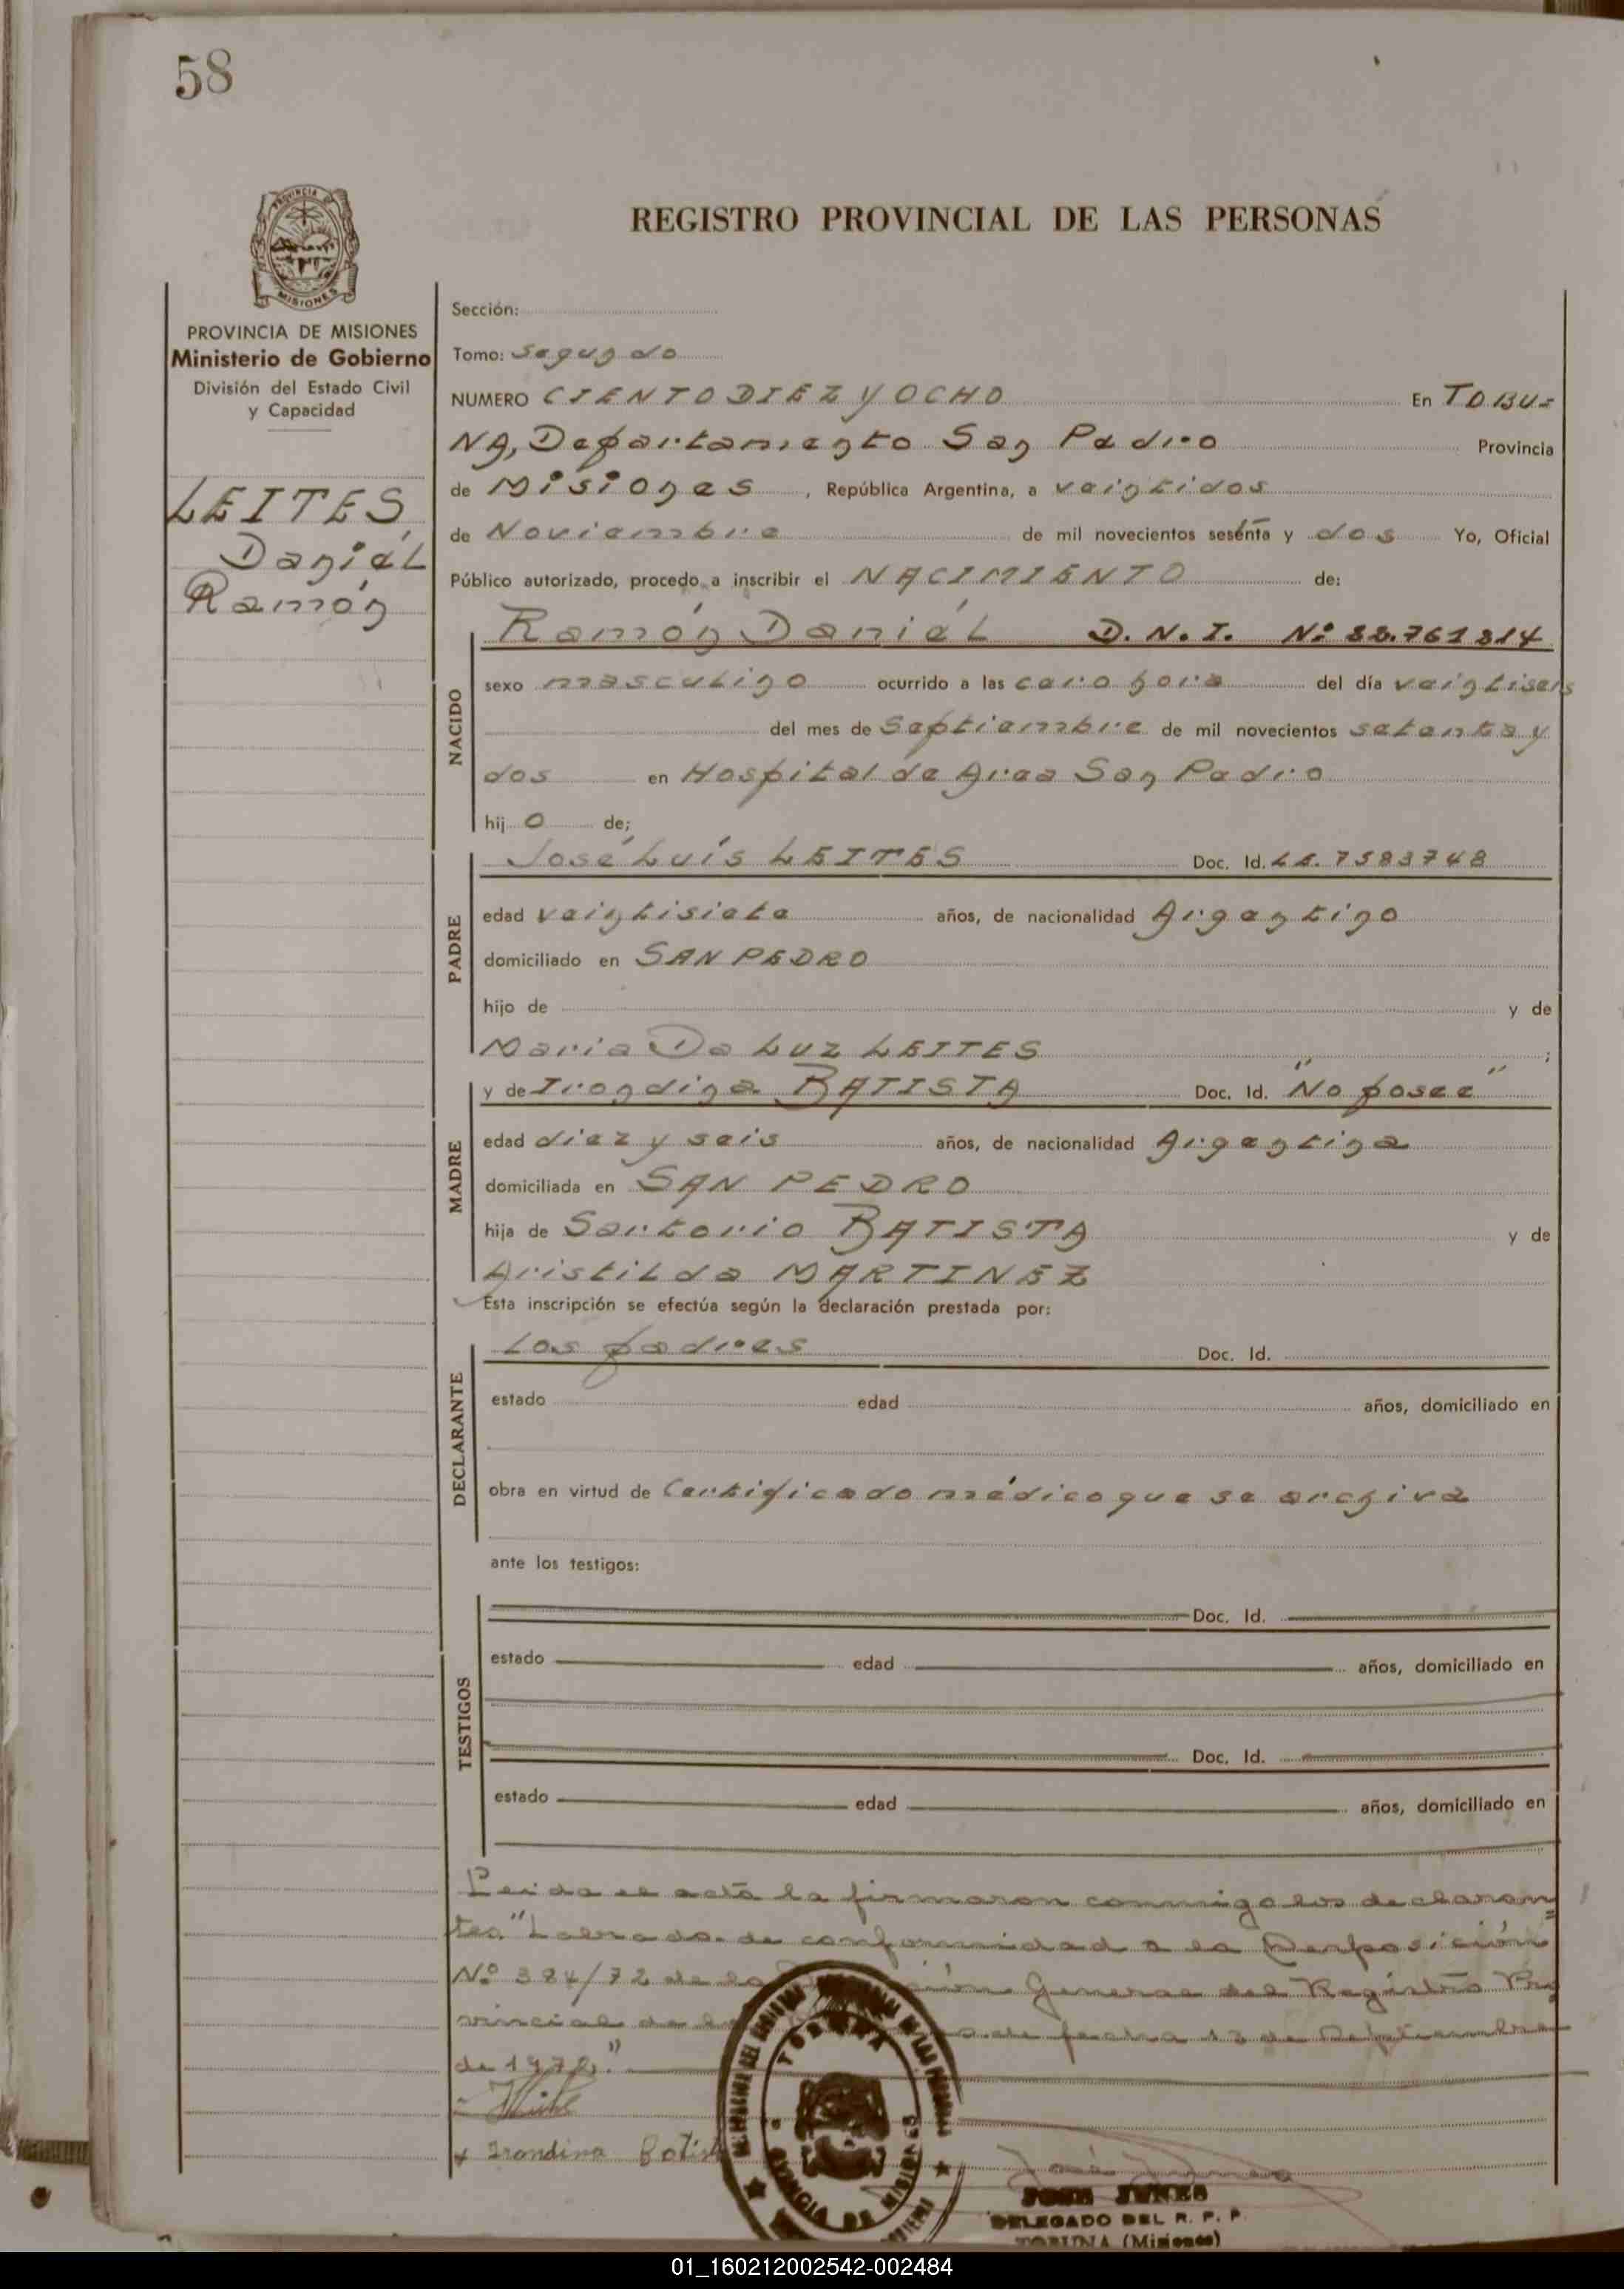 58
REGISTRO PROVINCIAL DE LAS PERSONAS
PROVINCIA
MISIONES
PROVINCIA DE MISIONES
Ministerio de Gobierno
División del Estado Civil
y Capacidad
LEITES,
Daniél
Ramón
Sección:
Tomo: segundo
NUMERO CIENTO DIEZ Y OCHO En TOBU=
NA, Departamento San Pedro Provincia
de Misiones, República Argentina, a veintidos
de Noviembre de mil novecientos sesénta y dos Yo, Oficial
Público autorizado, procedo a inscribir el NACIMIENTO de:
Ramón Daniél D.N.I. Nº
NACIDO
sexo masculino ocurrido a las cero hora del día veintiseis
del mes de Septiembre de mil novecientos setenta y
dos en Hospital de Area San Pedro
hij o de;
PADRE
José Luís LEITES Doc. Id. 7583748
edad veintisiete años, de nacionalidad Argentino
domiciliado en SAN PEDRO
hijo de y de
Maria Da LUZ LEITES ;
MADRE
y de Irondina BATISTA Doc. Id. "No posee"
edad diez y seis años, de nacionalidad Argentina
domiciliada en SAN PEDRO
hija de Sartorio BATISTA y de
Aristilda MARTINEZ
Esta inscripción se efectúa según la declaración prestada por:
DECLARANTE
Los padres Doc. Id.
estado edad años, domiciliado en
obra en virtud de Certificado médico que se archiva
ante los testigos:
TESTIGOS
Doc. Id.
estado edad años, domiciliado en
Doc. Id.
estado edad años, domiciliado en
Leida el acta la firmaron conmigo los declaran=
tes. "Labrado de conformidad a la
Nº 384/72 de la General del Registro Pro
vincial de de fecha 13 de Septiembre
de 1972."
Irondina Batist
TOBUNA
PROVINCIA DE MISIONES
JOSE JUNES
DELEGADO DEL R. P. P.
TOBUNA (Misiones)
01_160212002542-002484